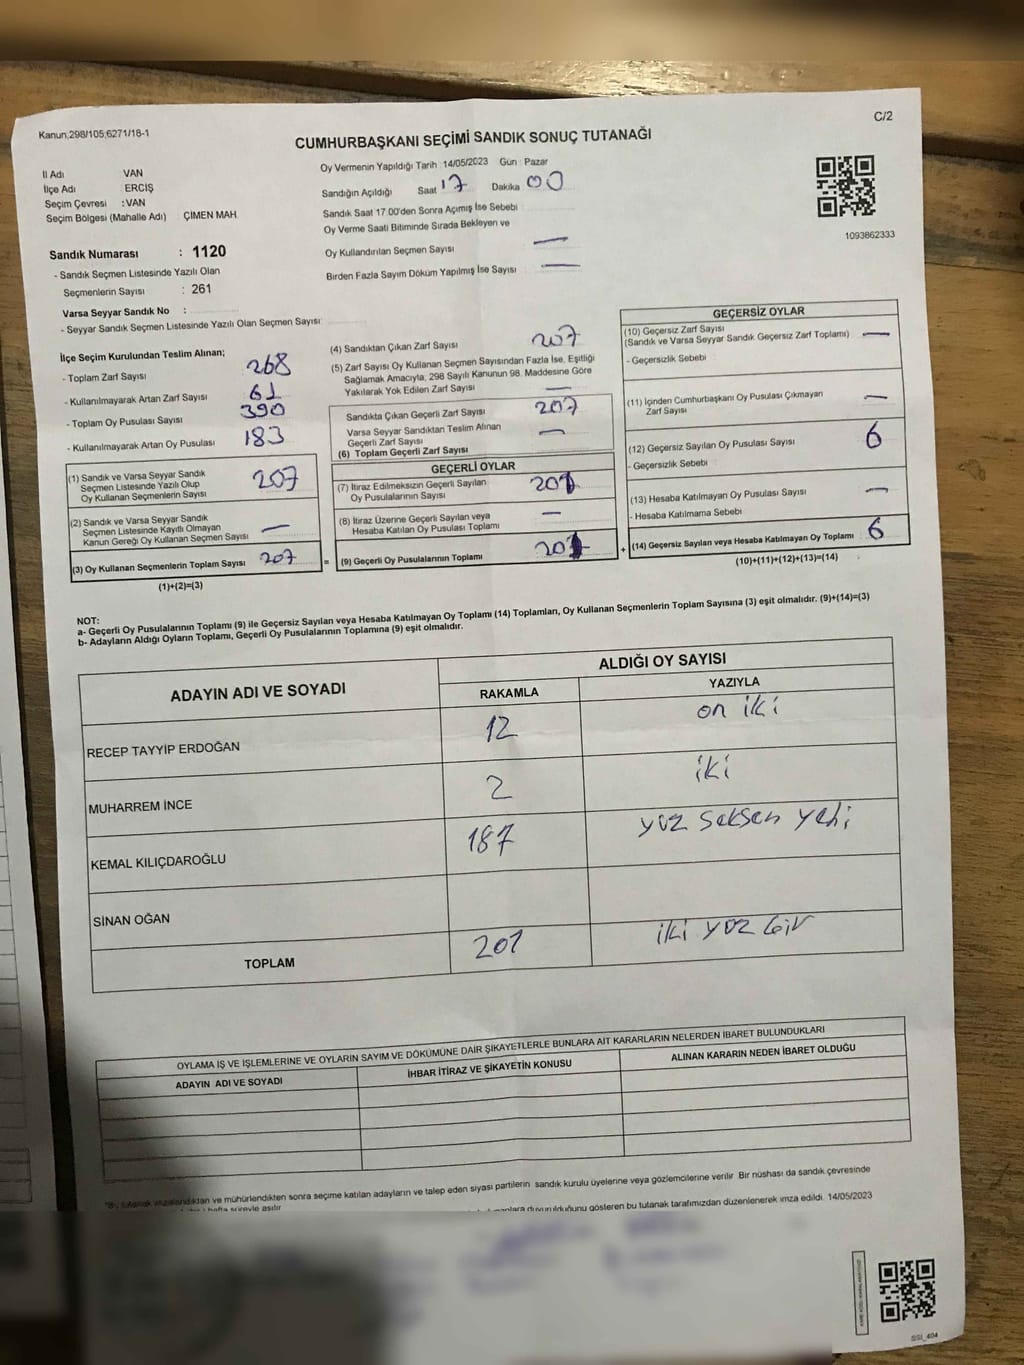 C/2
Kanun;298/105;6271/18-1
CUMHURBAŞKANI SEÇİMİ SANDIK SONUÇ TUTANAĞI
İl Adı VAN
İlçe Adı : ERCİŞ
Seçim Çevresi : VAN
Seçim Bölgesi (Mahalle Adı) : ÇİMEN MAH.
Oy Vermenin Yapıldığı Tarih : 14/05/2023 Gün : Pazar
Sandığın Açıldığı Saat 17 Dakika 00
Sandık Saat 17.00'den Sonra Açımış İse Sebebi :
Oy Verme Saati Bitiminde Sırada Bekleyen ve
Oy Kullandırılan Seçmen Sayısı —
Birden Fazla Sayım Döküm Yapılmış İse Sayısı : —
1093862333
Sandık Numarası : 1120
- Sandık Seçmen Listesinde Yazılı Olan
Seçmenlerin Sayısı : 261
Varsa Seyyar Sandık No :
- Seyyar Sandık Seçmen Listesinde Yazılı Olan Seçmen Sayısı:
İlçe Seçim Kurulundan Teslim Alınan;
- Toplam Zarf Sayısı 268
- Kullanılmayarak Artan Zarf Sayısı 61
- Toplam Oy Pusulası Sayısı 390
- Kullanılmayarak Artan Oy Pusulası 183
(1) Sandık ve Varsa Seyyar Sandık
Seçmen Listesinde Yazılı Olup
Oy Kullanan Seçmenlerin Sayısı 207
(2) Sandık ve Varsa Seyyar Sandık
Seçmen Listesinde Kayıtlı Olmayan
Kanun Gereği Oy Kullanan Seçmen Sayısı —
(3) Oy Kullanan Seçmenlerin Toplam Sayısı 207
(1)+(2)=(3)
(4) Sandıktan Çıkan Zarf Sayısı 207
(5) Zarf Sayısı Oy Kullanan Seçmen Sayısından Fazla İse, Eşitliği
Sağlamak Amacıyla, 298 Sayılı Kanunun 98. Maddesine Göre
Yakılarak Yok Edilen Zarf Sayısı —
Sandıkta Çıkan Geçerli Zarf Sayısı 207
Varsa Seyyar Sandıktan Teslim Alınan
Geçerli Zarf Sayısı —
(6) Toplam Geçerli Zarf Sayısı
=
GEÇERLİ OYLAR
(7) İtiraz Edilmeksizin Geçerli Sayılan
Oy Pusulalarının Sayısı 201
(8) İtiraz Üzerine Geçerli Sayılan veya
Hesaba Katılan Oy Pusulası Toplamı —
(9) Geçerli Oy Pusulalarının Toplamı 201
+
GEÇERSİZ OYLAR
(10) Geçersiz Zarf Sayısı
(Sandık ve Varsa Seyyar Sandık Geçersiz Zarf Toplamı) —
- Geçersizlik Sebebi :
(11) İçinden Cumhurbaşkanı Oy Pusulası Çıkmayan
Zarf Sayısı —
(12) Geçersiz Sayılan Oy Pusulası Sayısı 6
- Geçersizlik Sebebi :
(13) Hesaba Katılmayan Oy Pusulası Sayısı —
- Hesaba Katılmama Sebebi :
(14) Geçersiz Sayılan veya Hesaba Katılmayan Oy Toplamı 6
(10)+(11)+(12)+(13)=(14)
NOT:
a- Geçerli Oy Pusulalarının Toplamı (9) ile Geçersiz Sayılan veya Hesaba Katılmayan Oy Toplamı (14) Toplamları, Oy Kullanan Seçmenlerin Toplam Sayısına (3) eşit olmalıdır. (9)+(14)=(3)
b- Adayların Aldığı Oyların Toplamı, Geçerli Oy Pusulalarının Toplamına (9) eşit olmalıdır.
ADAYIN ADI VE SOYADI
ALDIĞI OY SAYISI
RAKAMLA YAZIYLA
RECEP TAYYİP ERDOĞAN 12 on iki
MUHARREM İNCE 2 iki
KEMAL KILIÇDAROĞLU 187 yüz seksen yedi
SİNAN OĞAN
TOPLAM 201 iki yüz bir
OYLAMA İŞ VE İŞLEMLERİNE VE OYLARIN SAYIM VE DÖKÜMÜNE DAİR ŞİKAYETLERLE BUNLARA AİT KARARLARIN NELERDEN İBARET BULUNDUKLARI
ADAYIN ADI VE SOYADI İHBAR İTİRAZ VE ŞİKAYETİN KONUSU ALINAN KARARIN NEDEN İBARET OLDUĞU
tutanak imzalandıktan ve mühürlendikten sonra seçime katılan adayların ve talep eden siyasi partilerin sandık kurulu üyelerine veya gözlemcilerine verilir. Bir nüshası da sandık çevresinde
hafta süreyle asılır. duyurulduğunu gösteren bu tutanak tarafımızdan düzenlenerek imza edildi. 14/05/2023
SSI_404